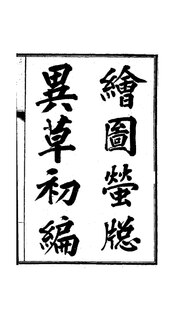 繪圖螢牕
異草初編